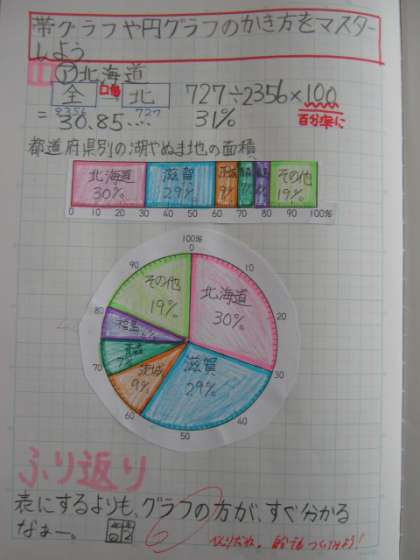 帯グラフや円グラフのかき方をマスター
しよう
1 ア北海道
全 → 北 727÷2356×100
2356 727 百分率に
= 30.85.... 31%
都道府県別の湖やぬま地の面積
北海道 滋賀 茨城 その他
30% 29% 9% 19%
0 10 20 30 40 50 60 70 80 90 100%
100%
0
その他 北海道
19% 30%
10
20
30
40
50
60
70
80
90
福島
青森
7%
茨城
9%
滋賀
29%
ふり返り
表にするよりも、グラフの方が、すぐ分かる
なぁー。